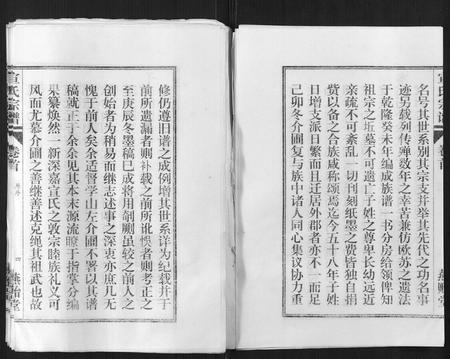 宣氏宗譜
卷首
燕貽堂
名号其世系别其宗支并举其先代之功名事
迹另载列传殚数年之幸苦兼仿欧苏之遗法
于乾隆癸未年编成族谱一书分房给领俾知
祖宗之坵墓不可遗亡子姓之尊卑长幼远近
亲疏不可紊乱一切刊刻纸墨之费皆独自捐
赀以备之合族咸称颂焉迄今五十八年子姓
日增支派日繁而且迁居外郡者亦不一而足
己卯冬介圃复与族中诸人同心集议协力重
修仍遵旧谱之成例增其世系详为纪载并于
前所遗漏者则补载之前所讹悮者则考正之
至庚辰冬墨稿巳成将用剞劂虽较之前人之
创始者为稍易而继志述事之深衷亦庶几无
愧于前人矣余适督学山左介圃不署以其谱
稿就正于余余见其本末源流瞭于指掌分编
果纂焕然一新深嘉宣氏之敦宗睦族礼义可
风而尤慕介圃之善继善述克绳其祖武也故
宣氏宗譜
卷首
四
燕貽堂